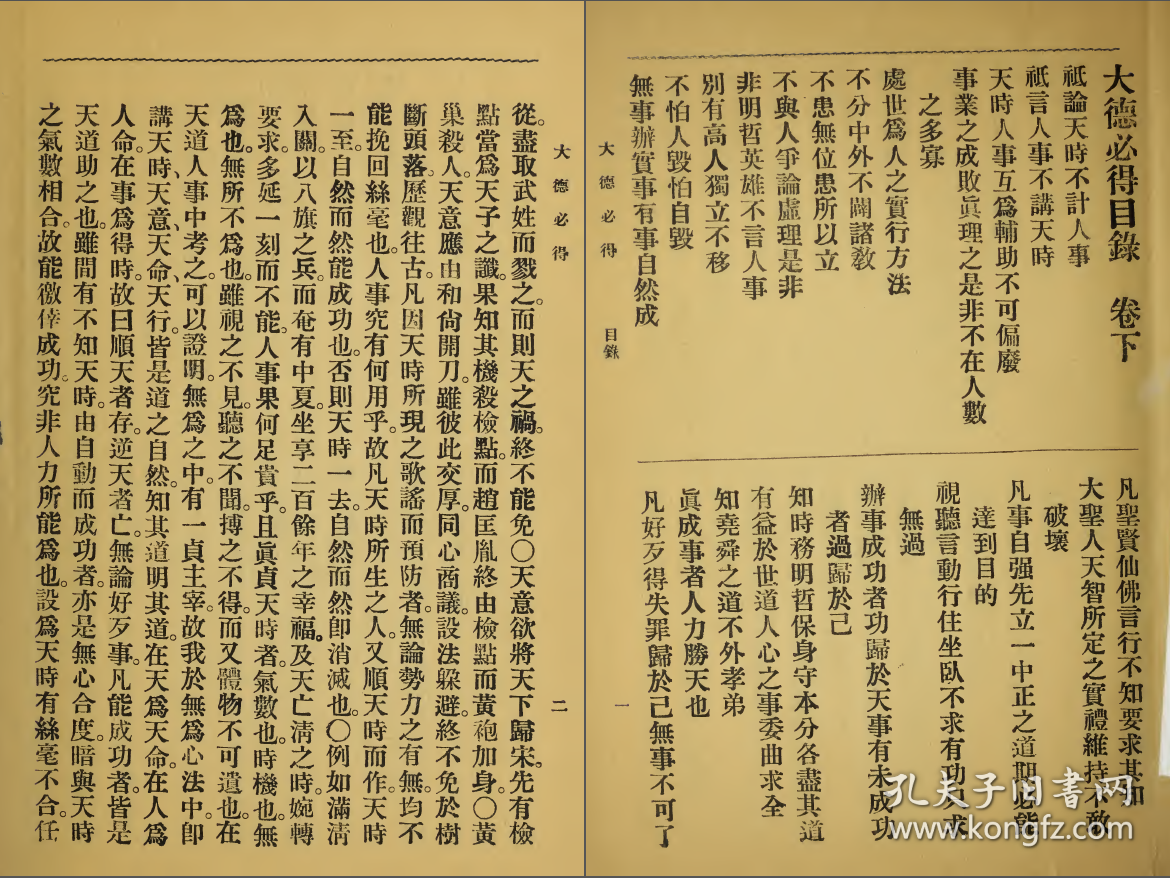 大德必得目錄　卷下
祇論天時不計人事
祇言人事不講天時
天時人事互爲輔助不可偏廢
事業之成敗眞理之是非不在人數
之多寡
處世爲人之實行方法
不分中外不闢諸敎
不患無位患所以立
不與人爭論虛理是非
非明哲英雄不言人事
別有高人獨立不移
不怕人毀怕自毀
無事辦實事有事自然成
凡聖賢仙佛言行不知要求其知
大聖人天智所定之實禮維持不敢
破壞
凡事自强先立一中正之道期必能
達到目的
視聽言動行住坐臥不求有功只求
無過
辦事成功者功歸於天事有未成功
者過歸於己
知時務明哲保身守本分各盡其道
有益於世道人心之事委曲求全
知堯舜之道不外孝弟
眞成事者人力勝天也
凡好歹得失罪歸於己無事不可了
大德必得　目錄
一
大德必得
二
從。盡取武姓而戮之。而則天之禍。終不能免〇天意欲將天下歸宋。先有檢
點當爲天子之讖。果知其機殺檢點。而趙匡胤終由檢點而黃袍加身。〇黃
巢殺人。天意應由和尙開刀。雖彼此交厚。同心商議。設法躱避。終不免於樹
斷頭落。歷觀往古。凡因天時所現之歌謠而預防者。無論勢力之有無。均不
能挽回絲毫也。人事究有何用乎。故凡天時所生之人。又順天時而作。天時
一至。自然而然能成功也。否則天時一去。自然而然卽消滅也。〇例如滿淸
入關。以八旗之兵。而奄有中夏。坐享二百餘年之幸福。及天亡淸之時。婉轉
要求。多延一刻而不能。人事果何足貴乎。且眞貞天時者。氣數也。時機也。無
爲也。無所不爲也。雖視之不見。聽之不聞。搏之不得。而又體物不可遺也。在
天道人事中考之。可以證明。無爲之中。有一貞主宰。故我於無爲心法中。卽
講天時、天意、天命、天行。皆是道之自然。知其道明其道。在天爲天命。在人爲
人命。在事爲得時。故曰順天者存。逆天者亡。無論好歹事。凡能成功者。皆是
天道助之也。雖間有不知天時。由自動而成功者。亦是無心合度。暗與天時
之氣數相合。故能徼倖成功。究非人力所能爲也。設爲天時有絲毫不合。任
孔夫子旧书网
www.kongfz.com